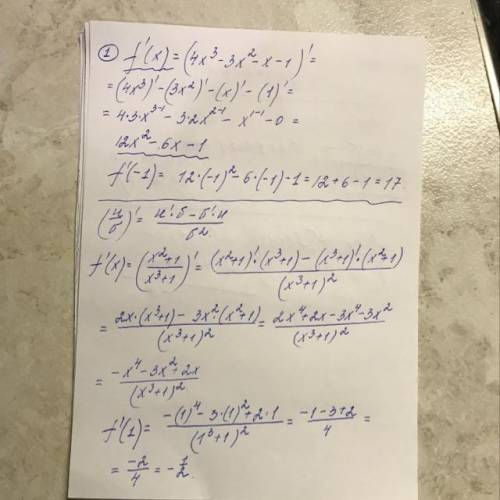 ① f'(x) = (4x³ - 3x² - x - 1)' =
= (4x³)' - (3x²)' - (x)' - (1)' =
= 4·3·x³⁻¹ - 3·2x²⁻¹ - x¹⁻¹ - 0 =
12x² - 6x - 1
f'(-1) = 12·(-1)² - 6·(-1) - 1 = 12 + 6 - 1 = 17.
(и/б)' = (и'·б - б'·и)/б²
f'(x) = ((x²+1)/(x³+1))' = ((x²+1)'·(x³+1) - (x³+1)'·(x²+1))/(x³+1)²
= (2x·(x³+1) - 3x²·(x²+1))/(x³+1)² = (2x⁴ + 2x - 3x⁴ - 3x²)/(x³+1)²
= (-x⁴ - 3x² + 2x)/(x³+1)²
f'(1) = (-(1)⁴ - 3·(1)² + 2·1)/(1³+1)² = (-1 - 3 + 2)/4 =
= -2/4 = -1/2.